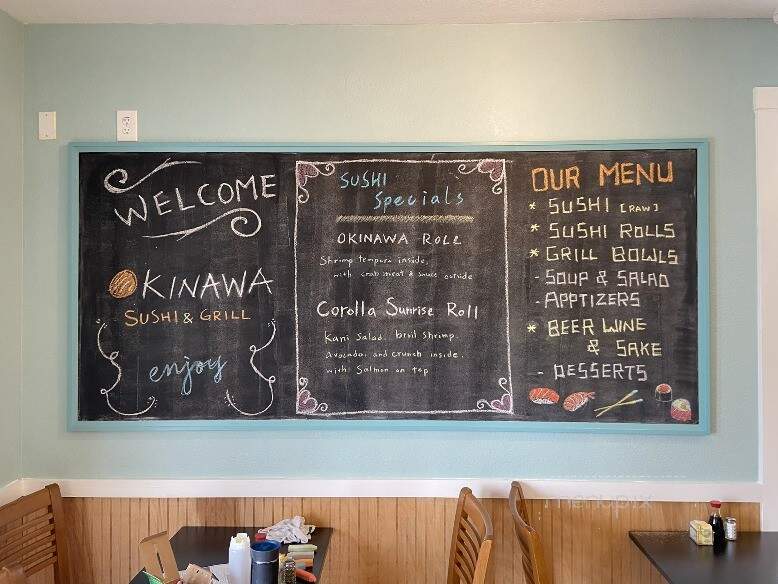 WELCOME
OKINAWA
SUSHI & GRILL
enjoy
SUSHI
Specials
OKINAWA ROLL
Shrimp tempura inside,
with crab meat & sauce outside
Corolla Sunrise Roll
Kani Salad, broil shrimp,
Avocado, and crunch inside,
with Salmon on top
OUR MENU
* SUSHI [RAW]
* SUSHI ROLLS
* GRILL BOWLS
- SOUP & SALAD
- APPTIZERS
* BEER WINE
& SAKE
- DESSERTS
menupix